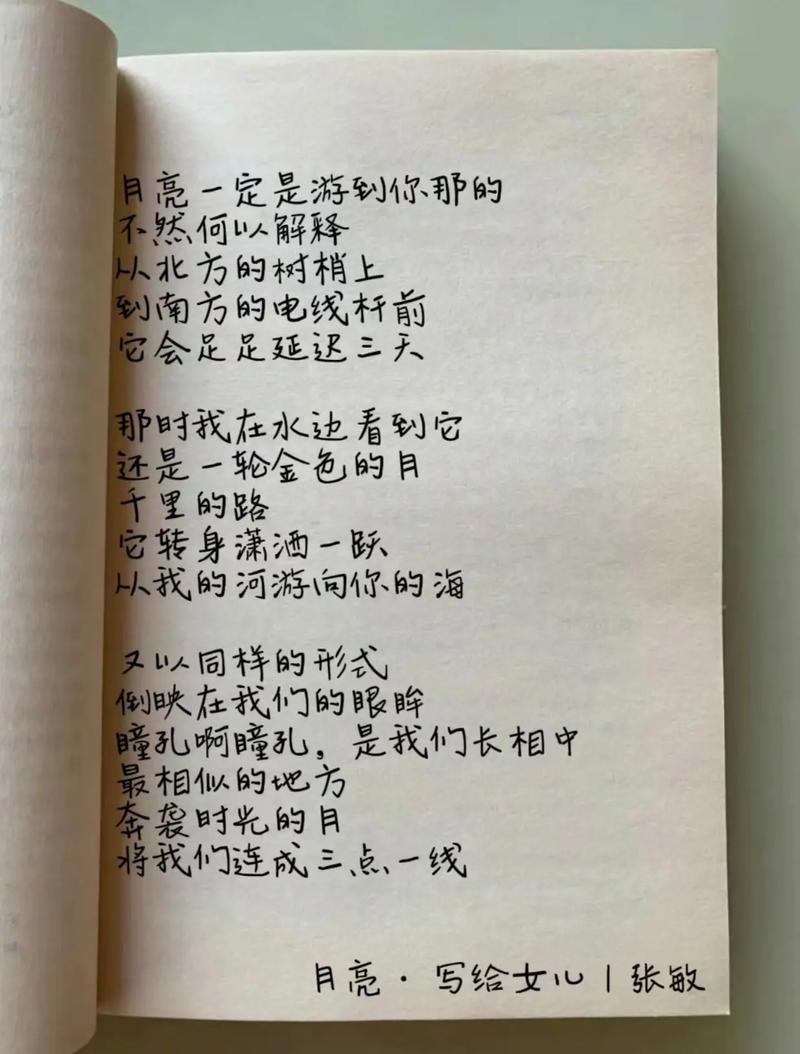 月亮一定是游到你那的
不然何以解释
从北方的树梢上
到南方的电线杆前
它会足足延迟三天
那时我在水边看到它
还是一轮金色的月
千里的路
它转身潇洒一跃
从我的河游向你的海
又以同样的形式
倒映在我们的眼眸
瞳孔啊瞳孔。是我们长相中
最相似的地方
奔袭时光的月
将我们连成三点一线
月亮·写给女儿|张敏